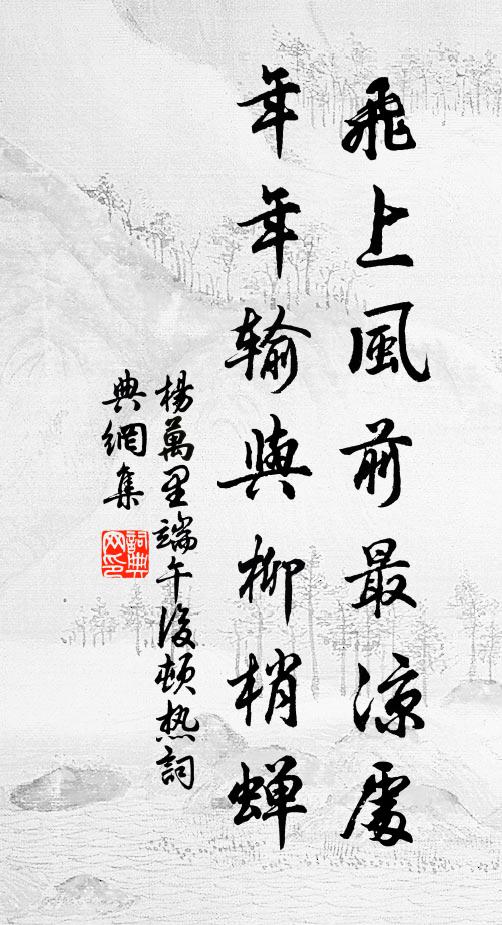 飛上風前最涼處
年年輸與柳梢蟬
楊萬里端午後頓熱詞
典網集
詞典
网印